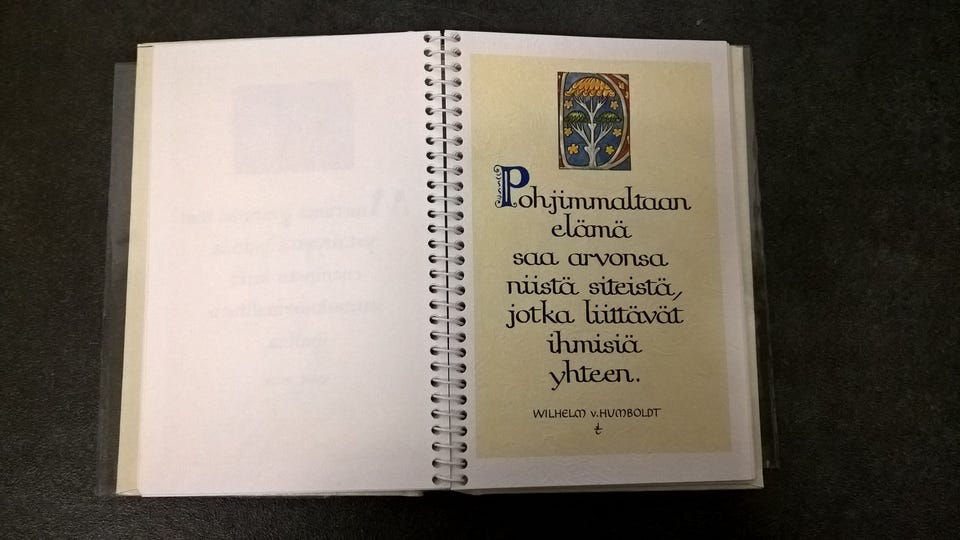 Pohjimmaltaan
elämä
saa arvonsa
niistä siteistä,
jotka liittävät
ihmisiä
yhteen.
WILHELM v. HUMBOLDT